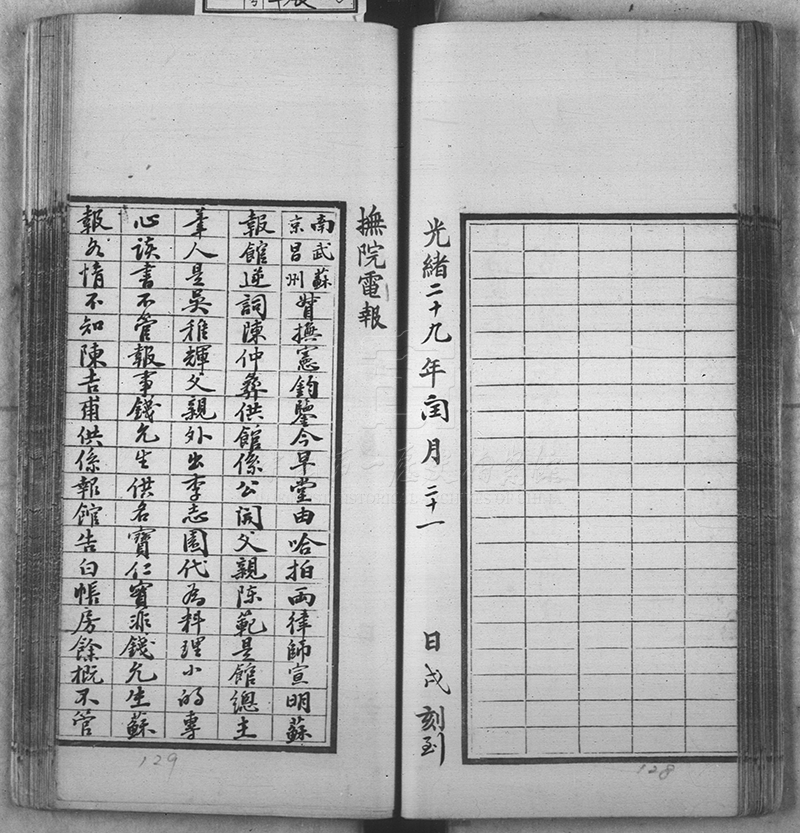 光緒二十九年閏月二十一日戌刻到
128
撫院電報
南京武昌蘇州督撫憲鈞鑒今早堂由哈拍兩律師宣明蘇
報館逆詞陳仲彝供館係公開父親陈範是館總主
筆人是吳稚輝父親外出李志園代為料理小的專
心读書不管報事錢允生供名寶仁實非錢允生蘇
報各情不知陳吉甫供係報館告白帳房餘概不管
129